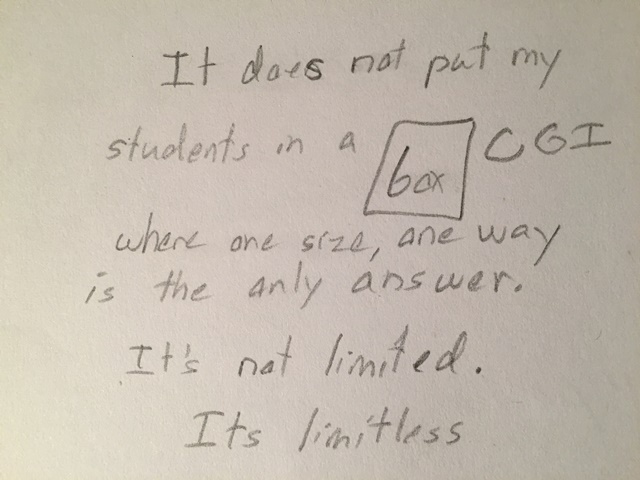 It does not put my
students in a box CGI
where one size, one way
is the only answer.
It's not limited.
Its limitless